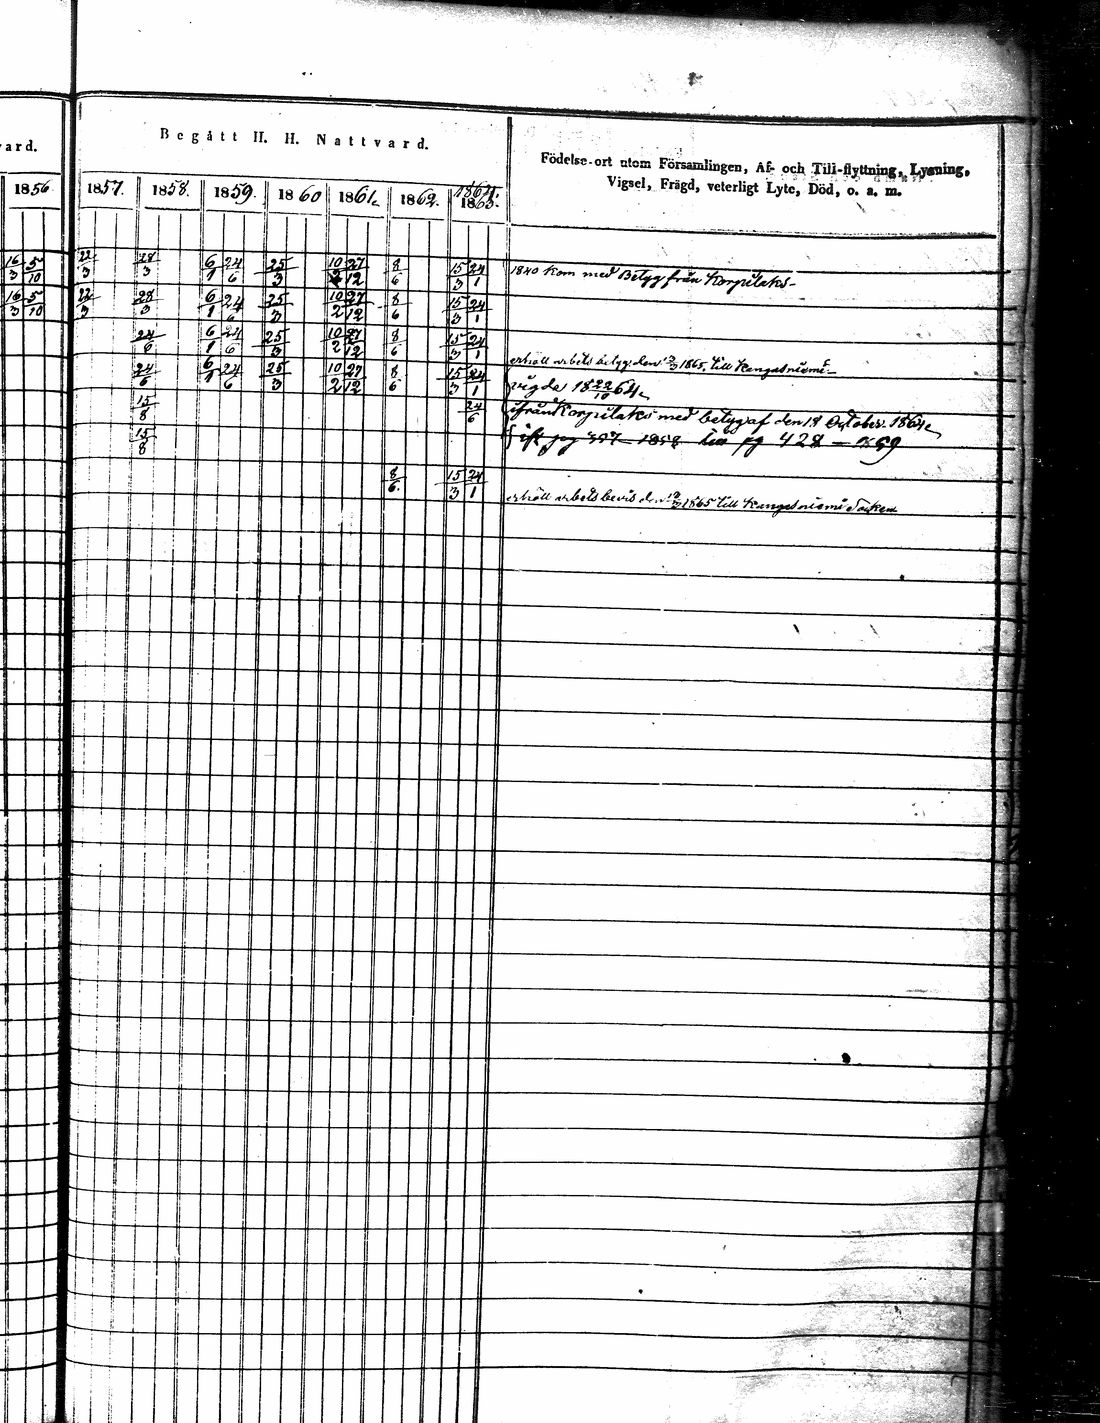 vard.
Begått H. H. Nattvard.
Födelse-ort utom Församlingen, Af- och Till-flyttning, Lysning,
Vigsel, Frägd, veterligt Lyte, Död, o. a. m.
1856 1857. 1858. 1859. 1860 1861. 1862. 1864.
1863.
16/3 5/10 22/3 28/3 6/1 24/6 25/3 10/2 27/12 8/6 15/3 24/1 1840 kom med Betyg från Korpilaks
16/3 5/10 22/3 28/3 6/1 24/6 25/3 10/2 27/12 8/6 15/3 24/1
24/6 6/1 24/6 25/3 10/2 27/12 8/6 15/3 24/1 erhöll arbets betyg den 1865 till Kangasniemi
24/6 6/1 24/6 25/3 10/2 27/12 8/6 15/3 24/1 vigde 18 22/10 64
15/8 24/6 ifrån Korpilaks med betyg af den 18 October 1864
15/8 pag 1858 pg 428 59
8/6 15/3 24/1 erhöll arbets bevis den 1865 till Kangasniemi Socken